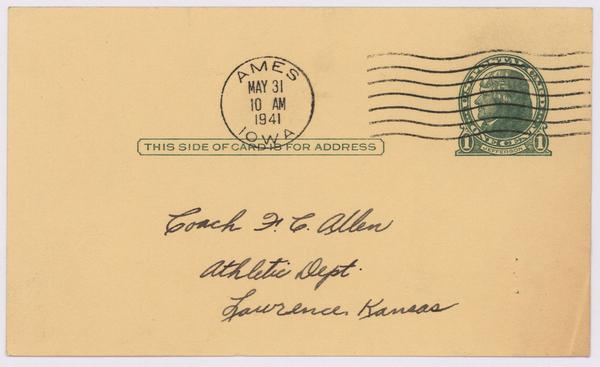 AMES
MAY 31
10 AM
1941
IOWA
THIS SIDE OF CARD IS FOR ADDRESS
U.S. POSTAL CARD
ONE CENT
1 JEFFERSON 1
Coach F. C. Allen
Athletic Dept.
Lawrence, Kansas